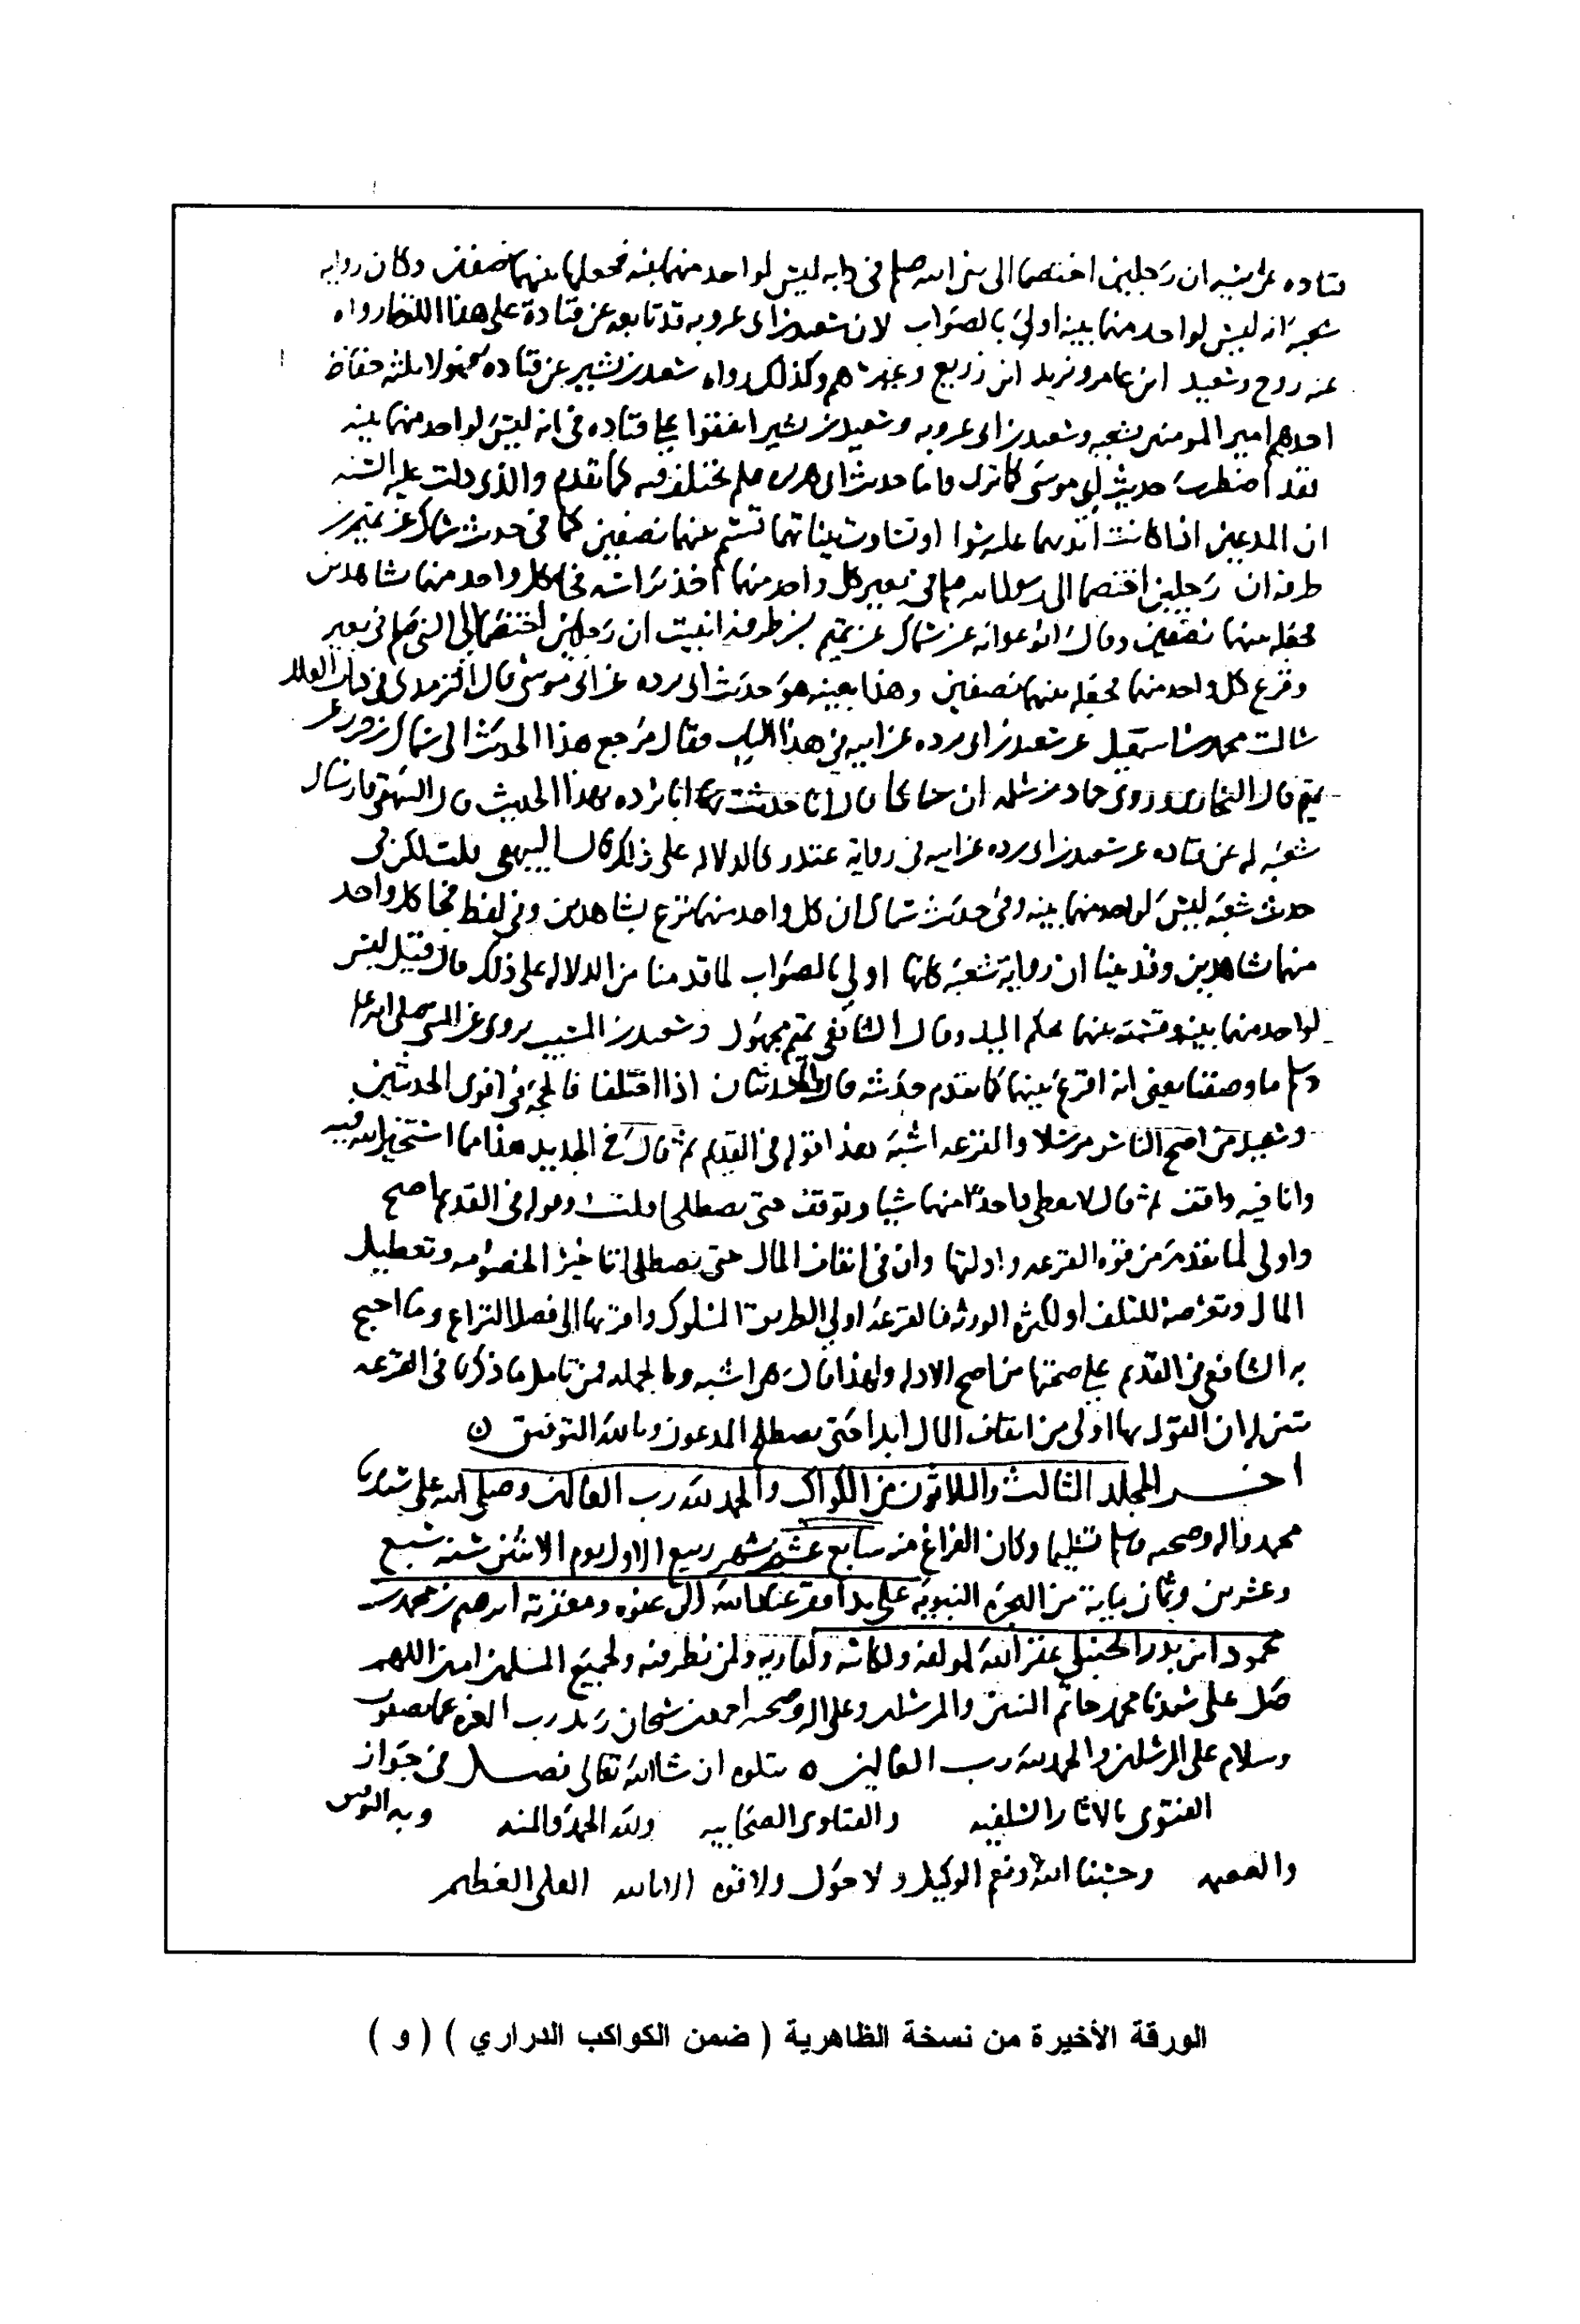 قتاده عن ابيه ان رجلين اختصما الى نبي الله صلم في دابه ليس لواحد منهما بينه فجعلها بينهما نصفين وكان روايه
شعبه انه ليس لواحد منهما بينه اولى بالصواب لان سعيد بن ابي عروبه قد تابعه عن قتادة على هذا اللفظ رواه
عنه روح وسعيد ابن عامر ويزيد ابن زريع وغيرهم وكذلك رواه سعيد بن بشير عن قتاده فهولا ثلثه حفاظ
احدهم امير المومنين شعبه وسعيد بن ابي عروبه وسعيد بن بشير اتفقوا على قتاده في انه ليس لواحد منهما بينه
فقد اضطرب حديث ابي موسى كما ترى واما حديث ابي هريره فلم يختلف فيه كما تقدم والذي دلت عليه السنه
ان المدعين اذا كانت ايديهما عليه سوا او تساوت بيناتهما قسم بينهما نصفين كما في حديث سماك عن تميم بن
طرفه ان رجلين اختصما الى رسول الله صلم في بعير كل واحد منهما اخذ براسه فجا كل واحد منهما شاهدين
فجعله بينهما نصفين وقال ابو عوانه عن سماك عن تميم بن طرفه انبيت ان رجلين اختصما الى النبي صلم في بعير
ونزع كل واحد منهما فجعله بينهما نصفين وهذا بعينه هو حديث ابي برده عن ابي موسى قال الترمذي في كتاب العلل
سالت محمد بن اسمعيل عن سعيد بن ابي برده عن ابيه في هذا الباب فقال مرجع هذا الحديث الى سماك بن حرب عن
تميم قال البخاري وروى حماد بن سلمه ان سماكا قال انا حدثت ابا برده بهذا الحديث قال البيهقي فارسال
شعبه له عن قتاده عن سعيد بن ابي برده عن ابيه في رواية غندر كالدلاله على ذلك قال البيهقي قلت لكن في
حديث شعبه ليس لواحد منهما بينه وفي حديث سماك ان كل واحد منهما نزع بشاهدين وفي لفظ فجا كل واحد
منهما شاهدين وقد بينا ان رواية شعبه كانها اولى بالصواب لما قدمنا من الدلاله على ذلك قال فقيل ليس
لواحد منهما بينه وقسمته بينهما بحكم اليد وقال الشافعي تميم مجهول وسعيد بن المسيب يروي عن النبي صلى الله عليه
وسلم ما وصفنا يعني انه اقرع بينهما كما تقدم حديثه قال والحديثان اذا اختلفا فالحجه في اقوى الحديثين
وسعيد من اصح الناس مرسلا والقرعه اشبه هذا قوله في القديم ثم قال في الجديد هذا مما استخير الله فيه
وانا فيه واقف ثم قال لا يعطى واحد منهما شيا ويوقف حتى يصطلحا قلت وقوله في القديم اصح
واولى لما تقدم من قوه القرعه وادلتها وان في ايقاف المال حتى يصطلحا تاخير الخصومه وتعطيل
المال وتعرضه للتلف او لكثرة الورثه فالقرعة اولى الطريق المسلوك واقربها الى فصل النزاع وما احتج
به الشافعي في القديم على صحتها من اصح الادله ولهذا قال هي اشبه وبالجمله فمن تامل ما ذكرنا في القرعه
تبين له ان القول بها اولى من ايقاف المال ابدا حتى يصطلح المدعون وبالله التوفيق ن
اخر المجلد الثالث والثلاثون من الكواكب والحمد لله رب العالمين وصلى الله على سيدنا
محمد واله وصحبه وسلم تسليما وكان الفراغ منه سابع عشر شهر ربيع الاول يوم الاثنين سنه سبع
وعشرين وثمان ماية من الهجره النبويه على يد افقر عباد الله الى عفوه ومغفرته ابرهيم بن محمد بن
محمود ابن بدر الحنبلي غفر الله لمولفه ولكاتبه ولقاريه ولمن نظر فيه ولجميع المسلمين امين اللهم
صل على سيدنا محمد خاتم النبيين والمرسلين وعلى اله وصحبه اجمعين سبحان ربك رب العزه عما يصفون
وسلام على المرسلين والحمد لله رب العالمين ه يتلوه ان شا الله تعالى فصل في جواز
الفتوى بالاثار السلفيه والفتاوى الصحابيه ولله الحمد والمنه وبه التوفيق
والعصمه وحسبنا الله ونعم الوكيل ولا حول ولا قوه الا بالله العلي العظيم
الورقة الأخيرة من نسخة الظاهرية ( ضمن الكواكب الدراري ) ( و )